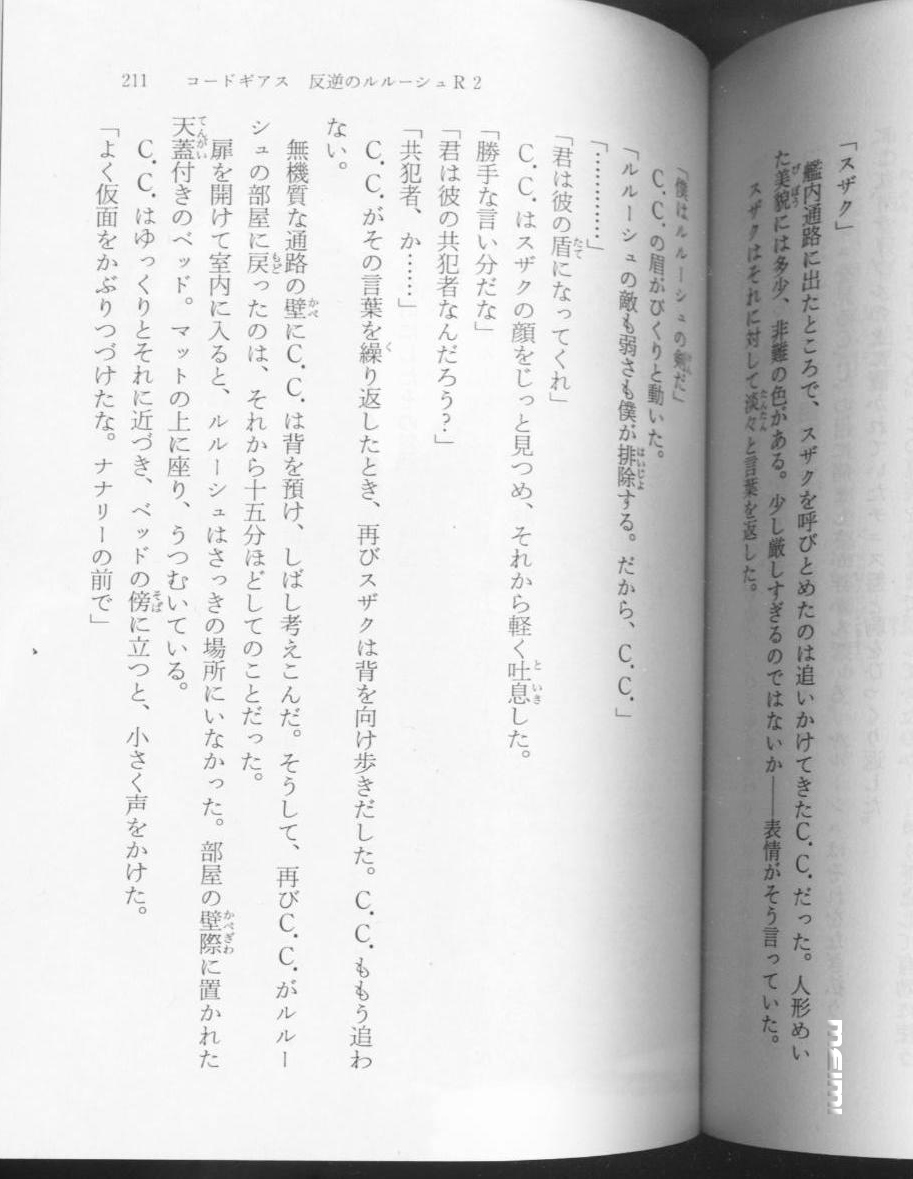 「スザク」
艦内通路に出たところで、スザクを呼びとめたのは追いかけてきたC.C.だった。人形めい
た美貌には多少、非難の色がある。少し厳しすぎるのではないか――表情がそう言っていた。
スザクはそれに対して淡々と言葉を返した。
「僕はルルーシュの剣だ」
C.C.の眉がぴくりと動いた。
「ルルーシュの敵も弱さも僕が排除する。だから、C.C.」
「…………」
「君は彼の盾になってくれ」
C.C.はスザクの顔をじっと見つめ、それから軽く吐息した。
「勝手な言い分だな」
「君は彼の共犯者なんだろう?」
「共犯者、か……」
C.C.がその言葉を繰り返したとき、再びスザクは背を向け歩きだした。C.C.ももう追わ
ない。
無機質な通路の壁にC.C.は背を預け、しばし考えこんだ。そうして、再びC.C.がルルー
シュの部屋に戻ったのは、それから十五分ほどしてのことだった。
扉を開けて室内に入ると、ルルーシュはさっきの場所にいなかった。部屋の壁際に置かれた
天蓋付きのベッド。マットの上に座り、うつむいている。
C.C.はゆっくりとそれに近づき、ベッドの傍に立つと、小さく声をかけた。
「よく仮面をかぶりつづけたな。ナナリーの前で」
211 コードギアス 反逆のルルーシュR2
meimi